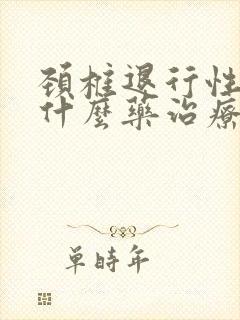 頚椎退行性
什麼藥治療
單時年